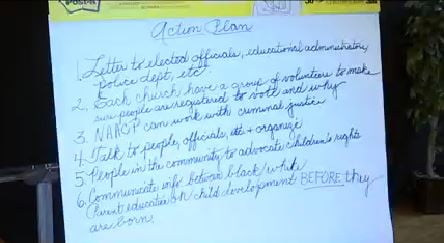 Post-it
Action Plan
1. Letter to elected officials, educational administrators,
Police dept, etc.
2. Each church have a group of volunteers to make
sure people are registered to vote and why
3. NAACP can work with criminal justice
4. Talk to people, officials, etc + organize
5. People in the community to advocate children's rights
6. Communicate info between black/white
(Parent education on child development BEFORE they
are born.